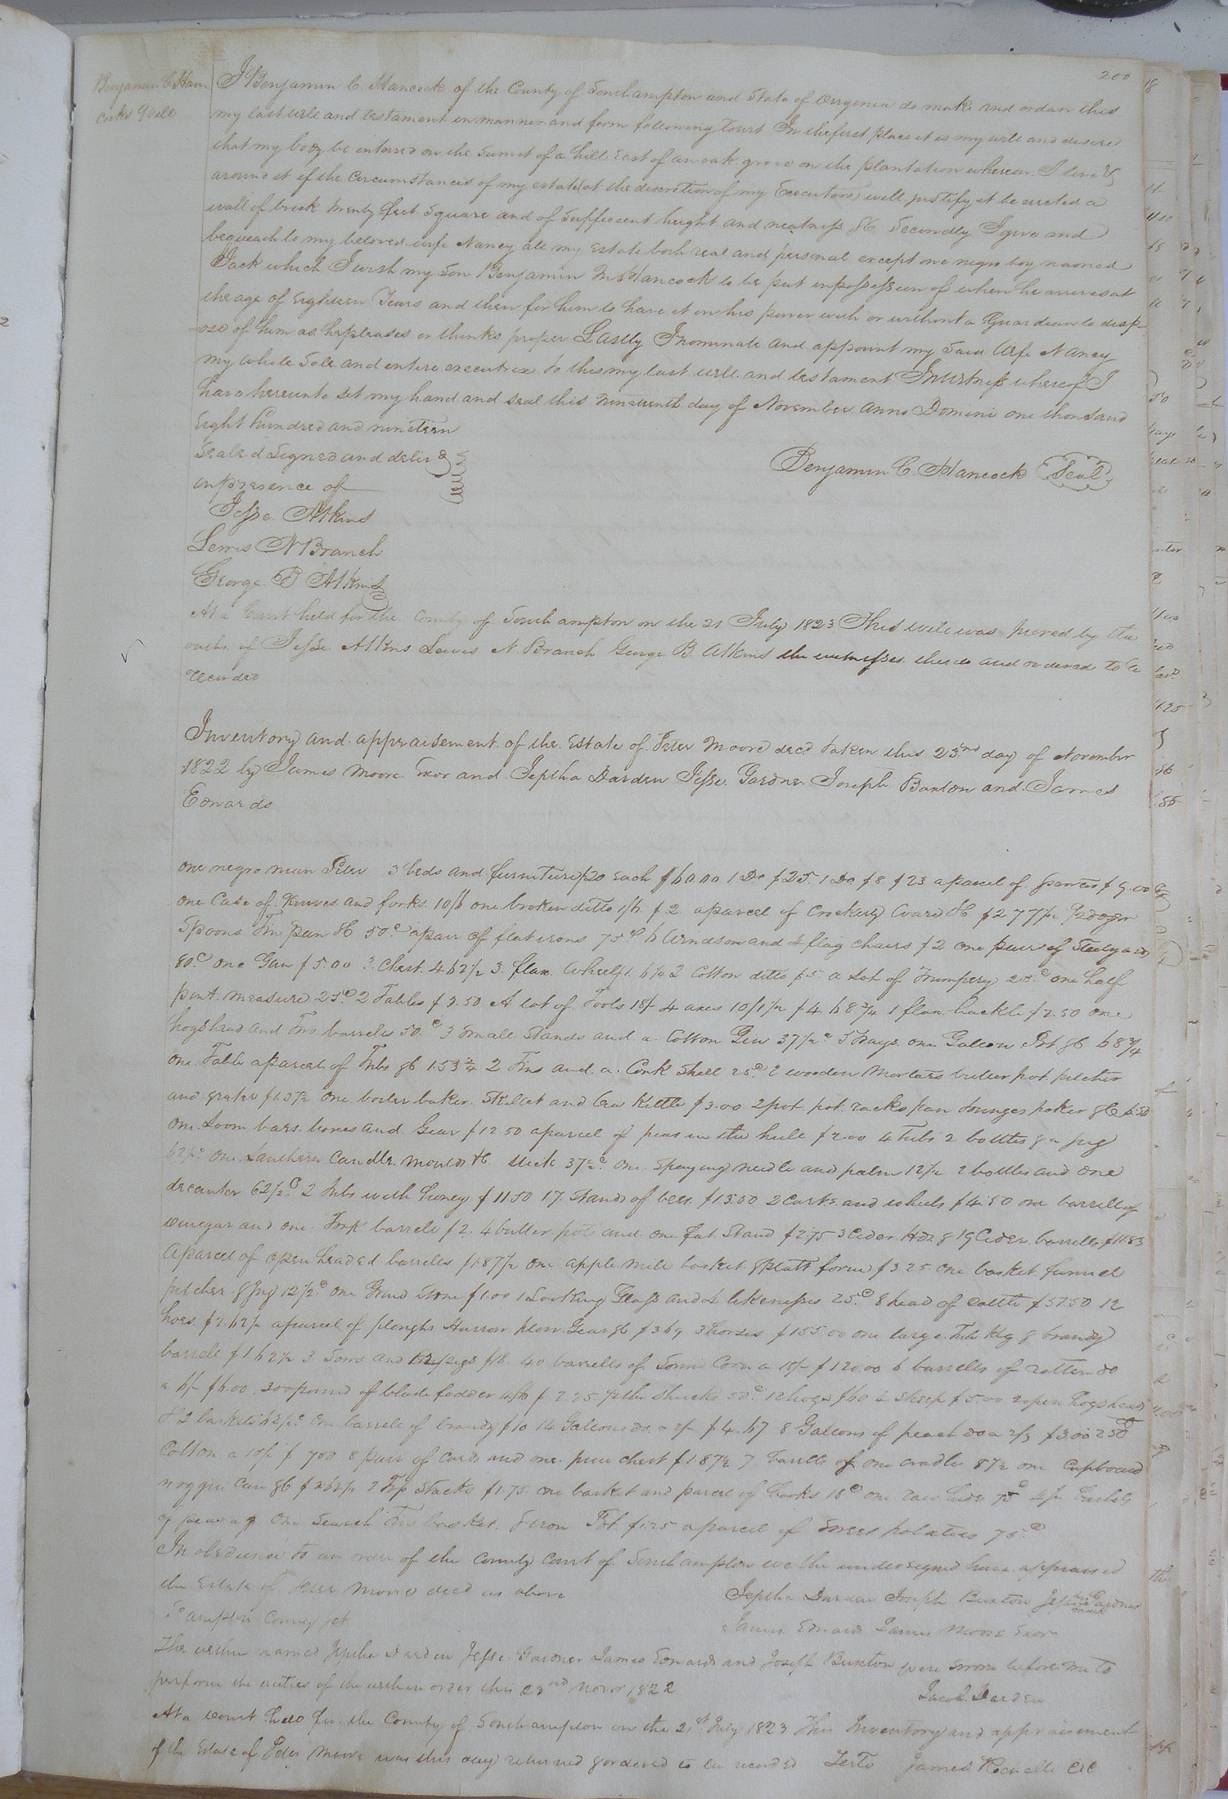 200
Benjamin C Han
cocks Will
I Benjamin C. Hancock of the County of Southampton and State of Virginia do make and ordain this
my last will and testament in manner and form following towit In the first place it is my will and desire
that my body be entered on the Sumet of a hill East of an oak grove on the plantation whereon I live &
around it if the Circumstances of my estate (at the discretion of my Executors) will justify it be erected a
wall of brick twenty feet Square and of Suffiecent height and neatness &c Secondly I give and
bequeath to my beloved wife Nancy all my Estate both real and personal except one negro boy named
Jack which I wish my Son Benjamin M Hancock to be put in possession of when he arrives at
the age of Eighteen Years and then for him to have it in his power with or without a Guardian to disp
ose of him as he pleases or thinks proper Lastly I nominate and appoint my Said Wife Nancy
my whole Sole and entire executrix to this my last will and testament In witness whereof I
have hereunto Set my hand and seal this Nineteenth day of November Anno Domini one thousand
Eight hundred and nineteen
Sealed Signed and deliv d
in presence of
Benjamin C. Hancock Seal
Jesse Atkins
Lewis N Branch
George B Atkins
At a Court held for the County of Southampton on the 21 July 1823 This will was proved by the
oaths of Jesse Atkins Lewis N. Branch George B. Atkins the witnesses thereto and ordered to be
recorded
Inventory and appraisement of the Estate of Peter Moore decd taken this 23rd day of November
1822 by James Moore Exor and Jeptha Darden Jesse Gardner Joseph Buxton and James
Edwards
one negro man Peter 3 beds and furniture $20 Each $60.00 1 Do $25. 1 Do $8 $23 a parcel of $9.00
one Case of Knives and forks 10/6 one broken ditto 1/6 $2 a parcel of Crockery Ware &c $2 77½
Spoons Tin pan &c 50c a pair of flat irons 75c 6 Windsor and 4 flag chairs $2 one pair of Steelyards
80c One Gun $5.00 3 Chest 4 62½ 3 flax Wheels 2 Cotton ditto $5 a Lot of Trumpery 25c one half
pint measure 25c 2 Tables $2.50 A lot of Tools 18/ 4 axes 10/1½ $4.68¾ 1 flax hackle $2.50 one
hogshead and Two barrels 50c 3 Small Stands and a Cotton Gin 37½c Trays one Galcon Pot &c 68¾
one Table a parcel of Tubs &c 1.53¾ 2 Tins and a Cork Shell 25c 2 wooden Mortars butter pot pitcher
and grater $1.37½ One boiler baker Skillet and Tea Kettle $3.00 2 pot racks pan tounges poker &c
one Loom bars bones and Gear $12 50 a parcel of peas in the hull $2.00 4 Tubs 2 bottles & a jug
62½c one Lanthern Candle moulds &c 37½c one Spaying needle and palm 12½ 2 bottles and one
decanter 62½c 2 tubs with honey $11.50 17 Stands of bees $15.00 2 Carts and wheels $4.50 one barrell of
vinegar and one Pork barrell $2. 4 butter pots and one fat Stand $2.75 3 Cider Hds & 19 Cider barrells $11.83
A parcel of open headed barrells $1.87½ one apple mill basket & platt form $3.25 one basket funnel
pitcher & jug 12½c one Grind Stone $1.00 1 Looking Glass and 2 likenesses 25c 8 head of cattle $57.50 12
hoes $2.62½ a parcel of ploughs Harrow plow Gear &c $3 69 3 horses $155.00 one large Tub Keg & brandy
barrell $1 62½ 3 Sows and 12 pigs $18 40 barrells of Sound Corn a 18/ $120.00 6 barrells of rotten do
a 6/ $6.00 300 pound of blade fodder 4/6 $2.25 shucks 50c 12 hogs $40 2 Sheep $5.00 2 open hogsheads
& 2 baskets 62½c One barrell of brandy $10 14 Gallons do a 2/ $4.67 8 Gallons of peach do a 2/3 $3.00 250
Cotton a 18/ $7.00 8 pair of Cards and one pine chest $1.87½ 7 barrels of one cradle 87½ one Cupboard
noggin Can &c 2 Top Stacks $1.75 one basket and parcel of Forks 15c one raw hide 75c
of peas One Search Two basket Iron Pot $1.25 a parcel of Sweet potatoes 75c
In obedience to an order of the County Court of Southampton we the undersigned have appraised
the Estate of Peter Moore decd as above
Jeptha Darden Joseph Buxton Jesse Gardner
James Edwards James Moore Exor
So ampton County Sct
The within named Jeptha Darden Jesse Gardner James Edwards and Joseph Buxton were sworn before me to
perform the duties of the within order this 23rd Novr 1822
Jacob Darden
At a Court held for the County of Southampton on the 21st July 1823 This Inventory and appraisement
of the Estate of Peter Moore was this day returned & ordered to be recorded Teste James Rochelle CC